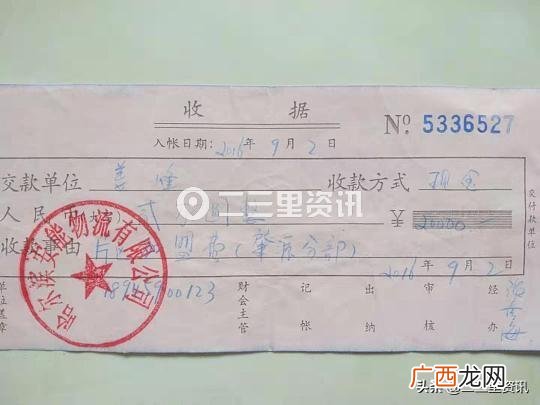 收 据
№ 5336527
入帐日期：2016年 9月 2日
交款单位 姜 收款方式 现金
人民币 贰 ￥20000.—
收款事由 盟费（肇东分部）
2016年 9月 2日
00123
财会主管 记帐 出纳 审核 经办
单位盖章
哈尔滨安能物流有限公司
交付款单位
二三里资讯
头条 @二三里资讯
广西龙网